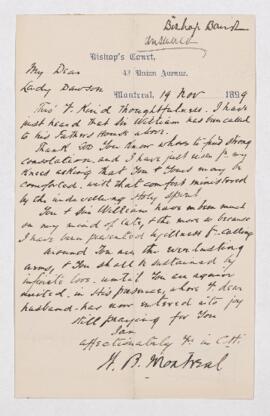 Bishop
answered
Bishop's Court,
42 Union Avenue.
Montreal, 19 Nov 1899
My Dear
Lady Dawson
This of kind Thoughtfulness. I have
just heard that Sir William has been called
to his Father's House above.
Thank God You Know where to find strong
consolation, and I have just risen fr my
knees asking that You & Yours may be
comforted, with that comfort ministered
by the indwelling Holy Spirit
You & Sir William have been much
on my mind of late, & the more so because
I have been prevented by illness fr calling
around You are the everlasting
arms, & You shall be sustained by
infinite love. until You are again
united, in His presence, where Yr dear
husband has now entered into joy
Still praying for You
I am
affectionately Yrs in Ct.
W. B. Montreal